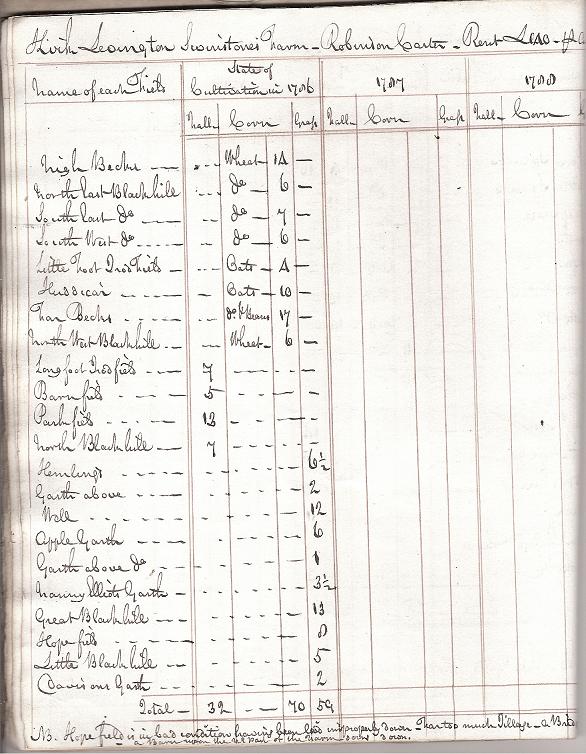 Kirk Levington Farm - Robinson Carter - Rent
Name of each Field State of Cultivation in 1786 1787 1788
Fall Corn Grass Fall Corn Grass Fall Corn
High Becks Wheat 14
North East Blackhill do 6
South East do do 7
South West do do 6
Little Foot Trod Field Oats 4
Oats 10
Far Becks do & Beans 17
North West Blackhill Wheat 6
Long foot Trod field 7
Barn field 5
Park field 13
North Blackhill 7
Hemlings 6½
Garth above 2
Well 12
Apple Garth 6
Garth above do 1
Nanny Elliots Garth 3½
Great Blackhill 13
Hope field 8
Little Blackhill 5
Davisons Garth 2
Total 32 70 59
NB. Hope field is in bad condition having been laid improperly down - Far too much Tillage - a
a Barn upon the part of the Farm down